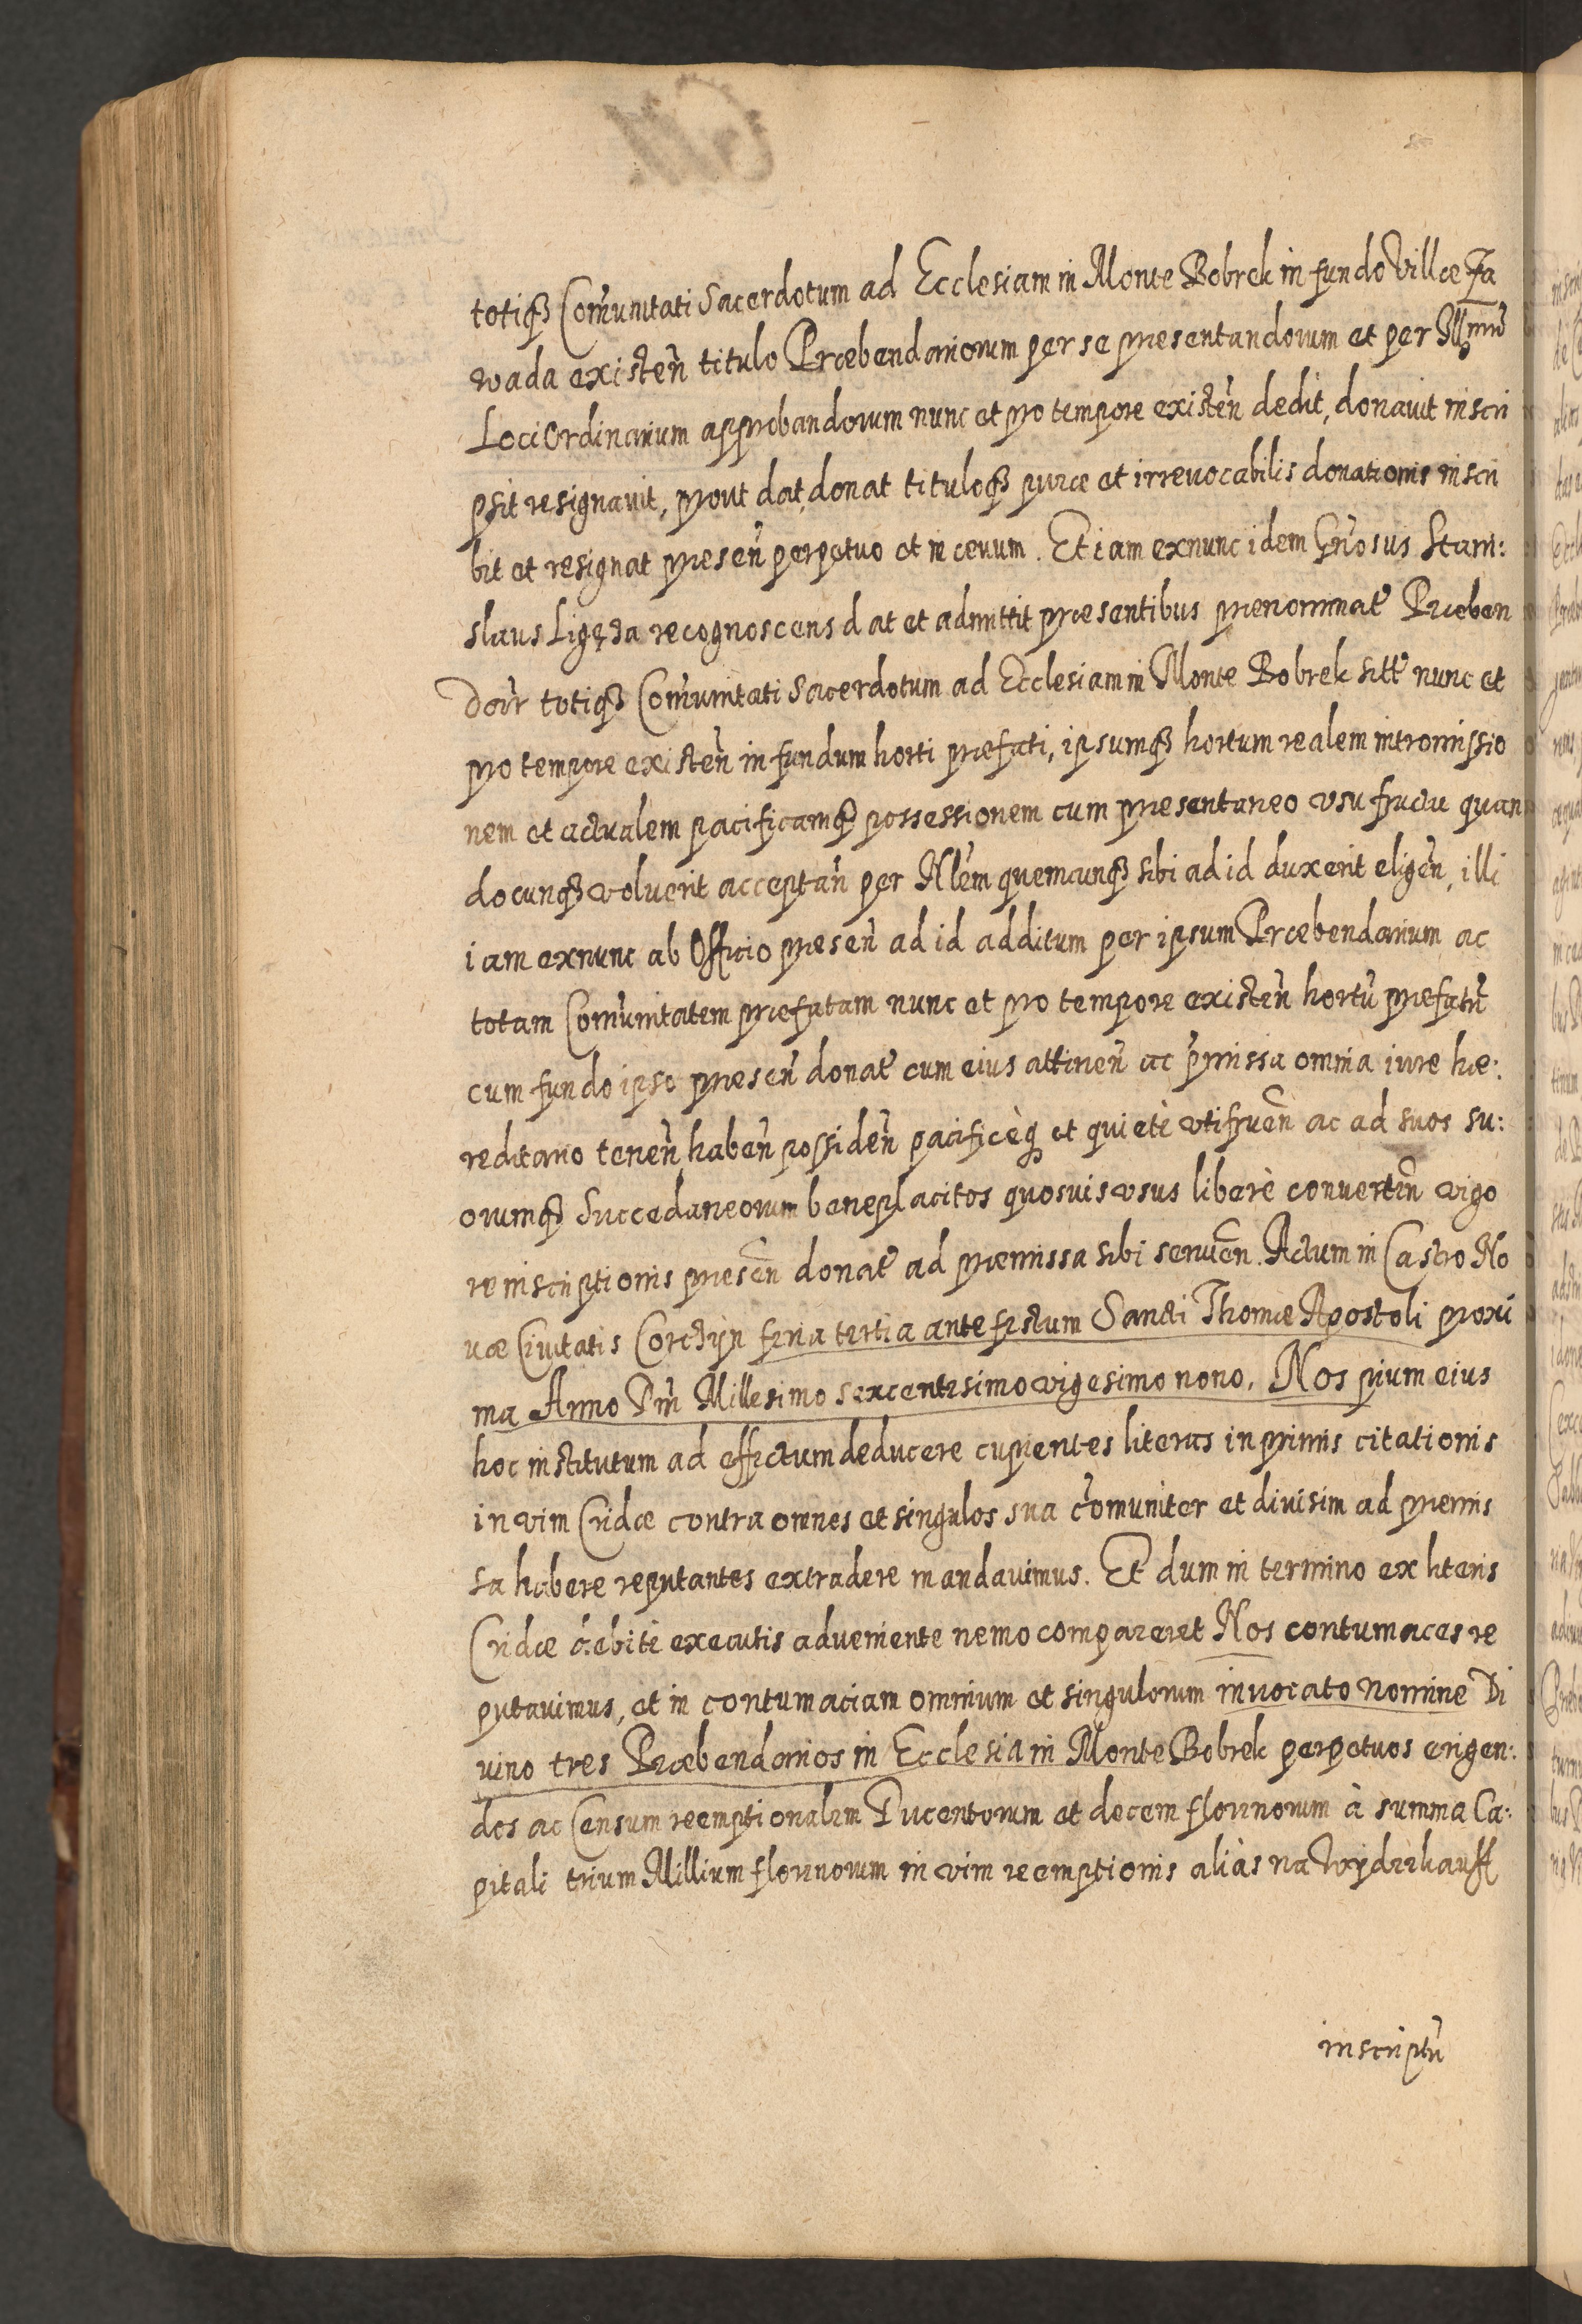 totiq₃ Com̃unitati Sacerdotum ad Ecclesiam in Monte Bobrek in fundo Villæ Ja
wada existen̄ titulo Præbendariorum per se præsentandorum et per Illm̃ũ
Loci Ordinarium approbandorum nunc et pro tempore existen̄ dedit, donauit inscri
psit resignauit, prout dat, donat tituloq₃ puræ et irreuocabilis donationis inscri
bit et resignat præsen̄ perpetuo et in æuum. Et iam exnunc idem Gñosus Stani:
slaus Ligęza recognoscens dat et admittit præsentibus prænominat̃ Præben
darr̄ totiq₃ Com̃unitati Sacerdotum ad Ecclesiam in Monte Bobrek sitt̃ nunc et
pro tempore existen̄ in fundum horti præfati, ipsumq₃ hortum realem intromissio
nem et actualem pacificamq₃ possessionem cum præsentaneo vsufructu quan
docunq₃ voluerit acceptan̄ per Nl̃em quemcunq₃ sibi ad id duxerit eligen̄, illi
iam exnunc ab Officio præsen̄ ad id additum per ipsum Præbendarium ac
totam Com̃unitatem præfatam nunc et pro tempore existen̄ hortũ præfatũ
cum fundo ipso præsen̄ donat̃ cum eius attinen̄ ac p̃missa omnia iure hæ:
reditario tenen̄, haben̄ possiden̄ pacificèq₃ et quietè vtifruen̄ ac ad suos su:
orumq₃ Succedaneorum beneplacitos quosuis vsus liberè conuerten̄ vigo
re inscriptionis præsen̄ donat̃ ad præmissa sibi seruien̄. Actum in Castro No
uæ Ciuitatis Corczÿn feria tertia ante festum Sancti Thomæ Apostoli proxi
ma Anno Dn̄i Millesimo sexcentesimo vigesimo nono. Nos pium eius
hoc institutum ad effectum deducere cupientes literas inprimis citationis
in vim Cridæ contra omnes et singulos sua com̃uniter et diuisim ad præmis
sa habere reputantes extradere mandauimus. Et dum in termino ex literis
Cridæ debitè executis adueniente nemo compareret Nos contumaces re
putauimus, et in contumaciam omnium et singulorum inuocato nomine Di
uino tres Præbendarios in Ecclesia in Monte Bobrek perpetuos erigen:
dos ac Censum reemptionalem Ducentorum et decem florinorum à summa Ca:
pitali trium Millium florinorum in vim reemptionis aliàs na Wÿdzrkauff
inscriptũ